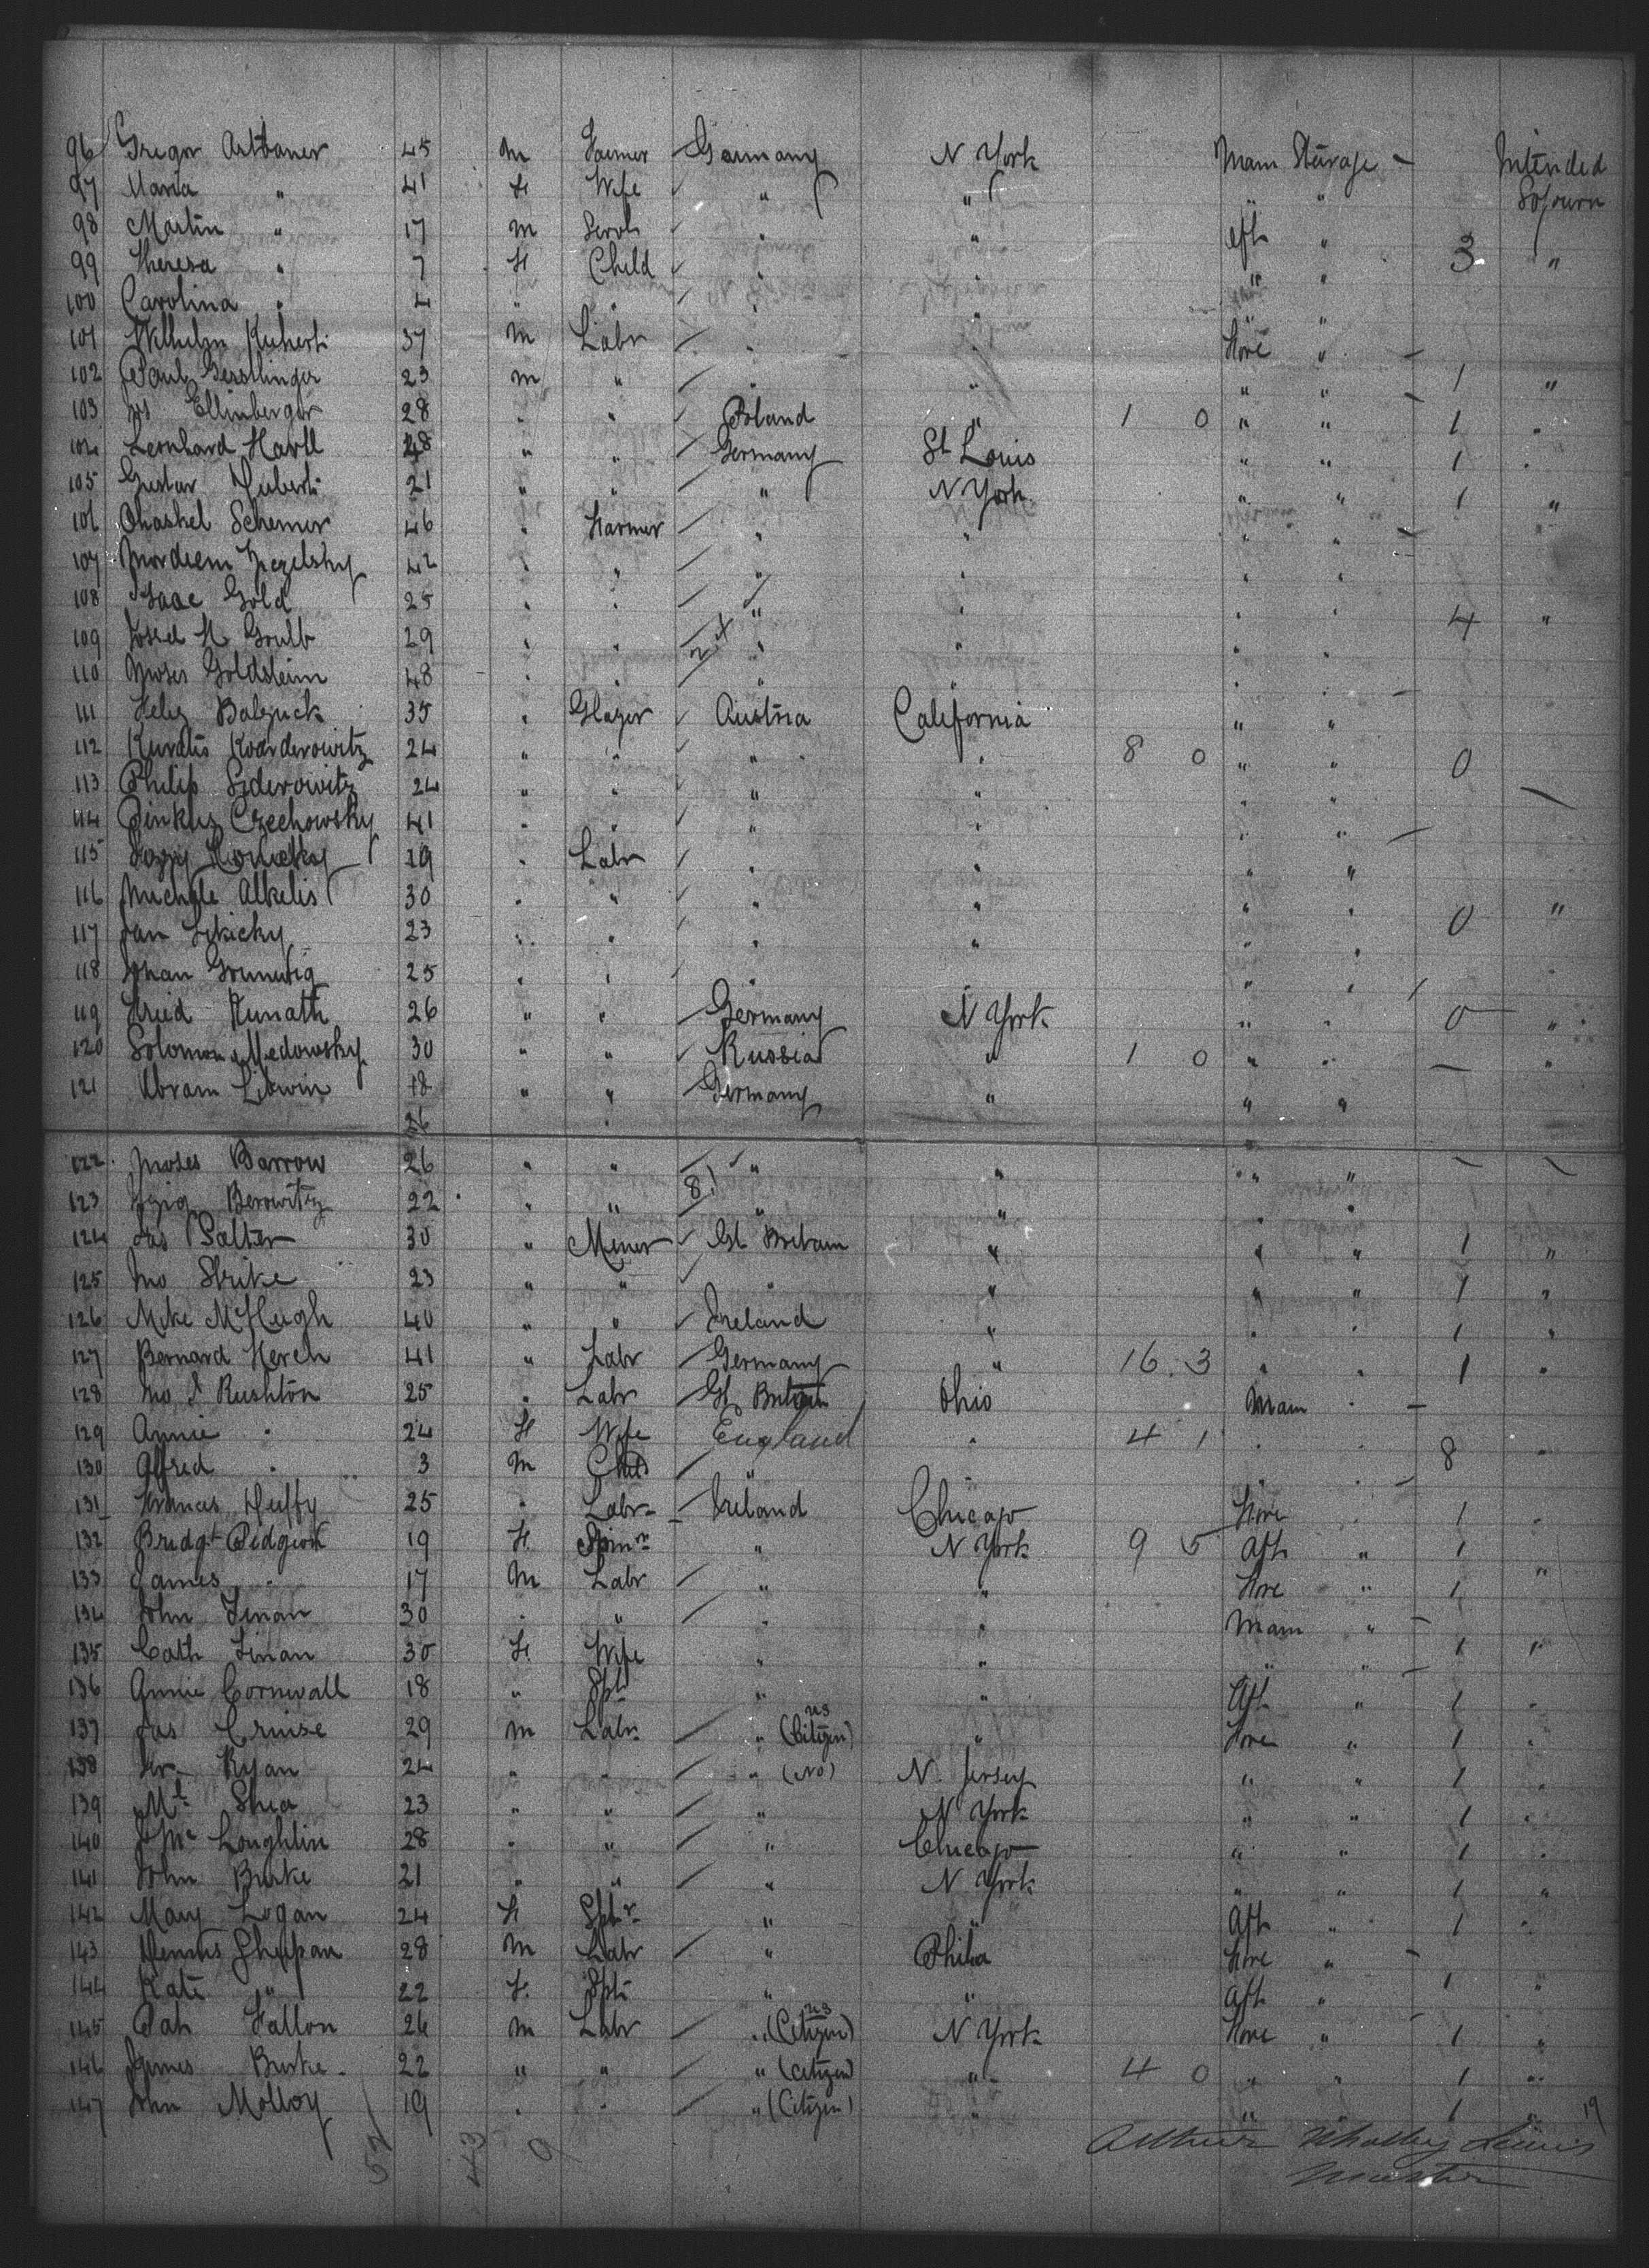 96 Gregor Artbauer 45 m Farmer Germany N York Main Steerage - Intended
97 Maria " 41 F Wife " " " " Sojourn
98 Martin " 17 m Servt " " Aft " 3 "
99 Theresa " 7 F Child " " " "
100 Carolina " 4 " " " " " "
101 Wilhelm 37 m Labr " " Fore "
102 Paul Gerstlinger 23 m " " " " " 1 "
103 Jos Ellinberger 28 " " Poland " 1 0 " " 1 "
104 Leonhard Hartl 28 " " Germany St Louis " " 1 "
105 Gustav Huberti 21 " " " N York " " 1 "
106 Chaskel Schemer 46 " Farmer " " " "
107 42 " " " " " "
108 Isaac Gold 25 " " " " " " 4 "
109 29 " " " " " "
110 Moses Goldstein 48 " " " " " "
111 35 " Glazer Austria California " "
112 24 " " " " 8 0 " " 0
113 Philip Siderowitz 24 " " " " " "
114 Pinkus Czechowsky 41 " " " " " "
115 19 " Labr " " " "
116 Alkelis 30 " " " " " " 0 "
117 Jan 23 " " " " " "
118 Johan 25 " " " " " "
119 Fried Kunath 26 " " Germany N York " " 0 "
120 Solomon Medowsky 30 " " Russia " 1 0 " " - "
121 Abram Litwin 18 " " Germany " " "
26
122 Moses Barrow 26 " " " " " "
123 Berowitz 22 " " 8 " " " "
124 Jas Salter 30 " Miner Gt Britain " " " 1 "
125 Jno Strike 23 " " " " " " 1 "
126 Mike McHugh 40 " " Ireland " " " 1 "
127 Bernard Herch 41 " Labr Germany " 16 3 " " 1 "
128 Jno S Rushton 25 " Labr Gt Britain Ohio Main " -
129 Annie " 24 F Wife England " 4 1 " " 8 "
130 Alfred " 3 m Child " " " "
131 Francis Duffy 25 " Labr Ireland Chicago Fore 1 "
132 Bridgt Pidgeon 19 F Spinr " N York 9 5 Aft " 1 "
133 James " 17 m Labr " " Fore " 1 "
134 John Finan 30 " " " " Main "
135 Cath Finan 30 F Wife " " " " 1 "
136 Annie Cornwall 18 " Spr " " Aft " 1 "
137 Jas Cruise 29 m Labr " (us Citizen) " Fore " 1 "
138 Ryan 24 " " " (No) N. Jersey " " 1 "
139 Ml Shea 23 " " " N York " " 1 "
140 J McLoughlin 28 " " " Chicago " " 1 "
141 John Burke 21 " " " N York " " 1 "
142 Mary Logan 24 F Spr " " Aft " 1 "
143 Dennis 28 m Labr " Phila Fore " -
144 Kate " 22 F Spr " " Aft " 1 "
145 Pat Fallon 26 m Labr " (us Citizen) N York Fore " 1 "
146 James Burke 22 " " " (Citizen) " 4 0 " " 1 "
147 John Molloy 19 " " " (Citizen) " " " 1 " 19
52 43 9
Arthur Lewis
Master